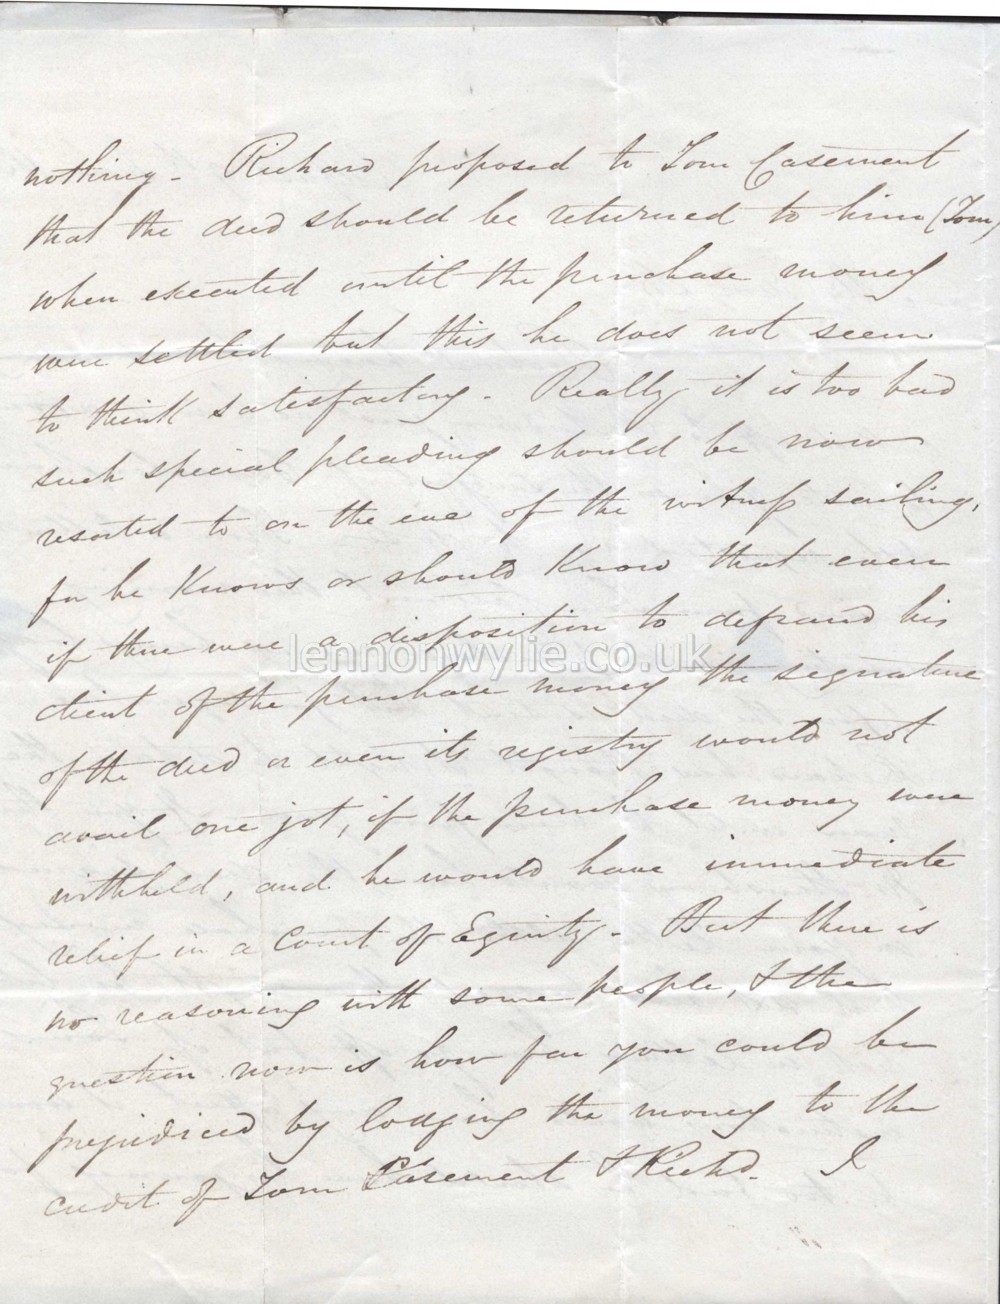 nothing - Richard proposed to Tom Casement
that the deed should be returned to him (Tom)
when executed until the purchase money
were settled but this he does not seem
to think satisfactory. Really it is too bad
such special pleading should be now
resorted to on the eve of the sailing,
for he knows or should know that even
if there were a disposition to defraud his
client of the purchase money the signature
of the deed or even its registry would not
avail one jot, if the purchase money were
withheld, and he would have immediate
relief in a Court of Equity - But there is
no reasoning with some people, & the
question now is how far you could be
prejudiced by lodging the money to the
credit of Tom Casement & Richd. I
lennonwylie.co.uk